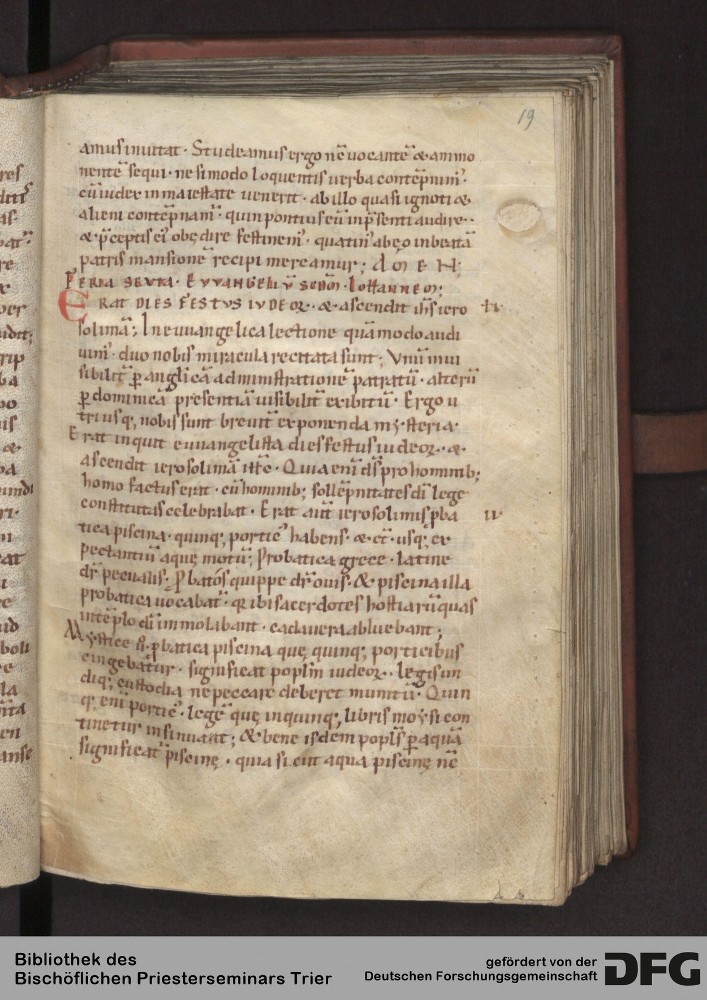 19
amusinuitat · Studeamus ergo nē uocantē & ammo
nentē sequi · ne si modo loquentis uerba contēpnim᷒ ·
cū iudex in maiestate uenerit · ab illo quasi ignoti &
alieni contēpnam᷒ · quin potius eū in p̄senti audire ·
& p̄ceptis ei᷒ obędire festinem᷒ · quatin᷒ ab eo in beatā
patris mansionē recipi mereamur ; AMEN ·
FERIA SEXTA · EVVANGELIV̄ SCD̄M · IOHANNEM ;
ERAT DIES FESTVS IVDEOR̄ · & ascendit ih̄s iero
solimā ; In euuangelica lectione quā modo audi
uim᷒ · duo nobis miracula recitata sunt ; Vnū inui
sibilit̄ p̄ anglicā administrationē patratū · alterū
p̄ dominicā presentiā uisibilit̄ exibitū · Ergo u
triusq; nobis sunt breuit̄ exponenda mysteria ·
Erat inquit euuangelista dies festus iudeor̄ · &
ascendit ierosolimā ih̄c · Quia enī d̄s pro hominib;
homo factus erat · cū hominib; sollēpnitates dī lege
constitutas celebrabat · Erat aut̄ ierosolimis p̄ba
tica piscina · quinq; portic᷒ habens · & cēt · usq; ex
pectantiū aquę motū ; Probatica grece · latine
dr̄ pecualis · Probatos quippe dr̄ ouis · & piscina illa
probatica uocabat᷒ · qr̄ ibi sacerdotes hostiarū quas
in tēplo dī immolabant · cadauera abluebant ;
Mystice u̇ · p̄batica piscina quę quinq; porticibus
cingebatur · significat popl̄m iudeor̄ · legis un
diq; custodia ne peccare deberet munitū · Quin
q; enī portic᷒ · legē quę in quinq; libris moysi con
tinetur insinuant ; & bene isdem popl̄s p̄ aquā
significat᷒ piscinę · quia sicut aqua piscinę nc̄
Bibliothek des
Bischöflichen Priesterseminars Trier
gefördert von der
Deutschen Forschungsgemeinschaft
DFG